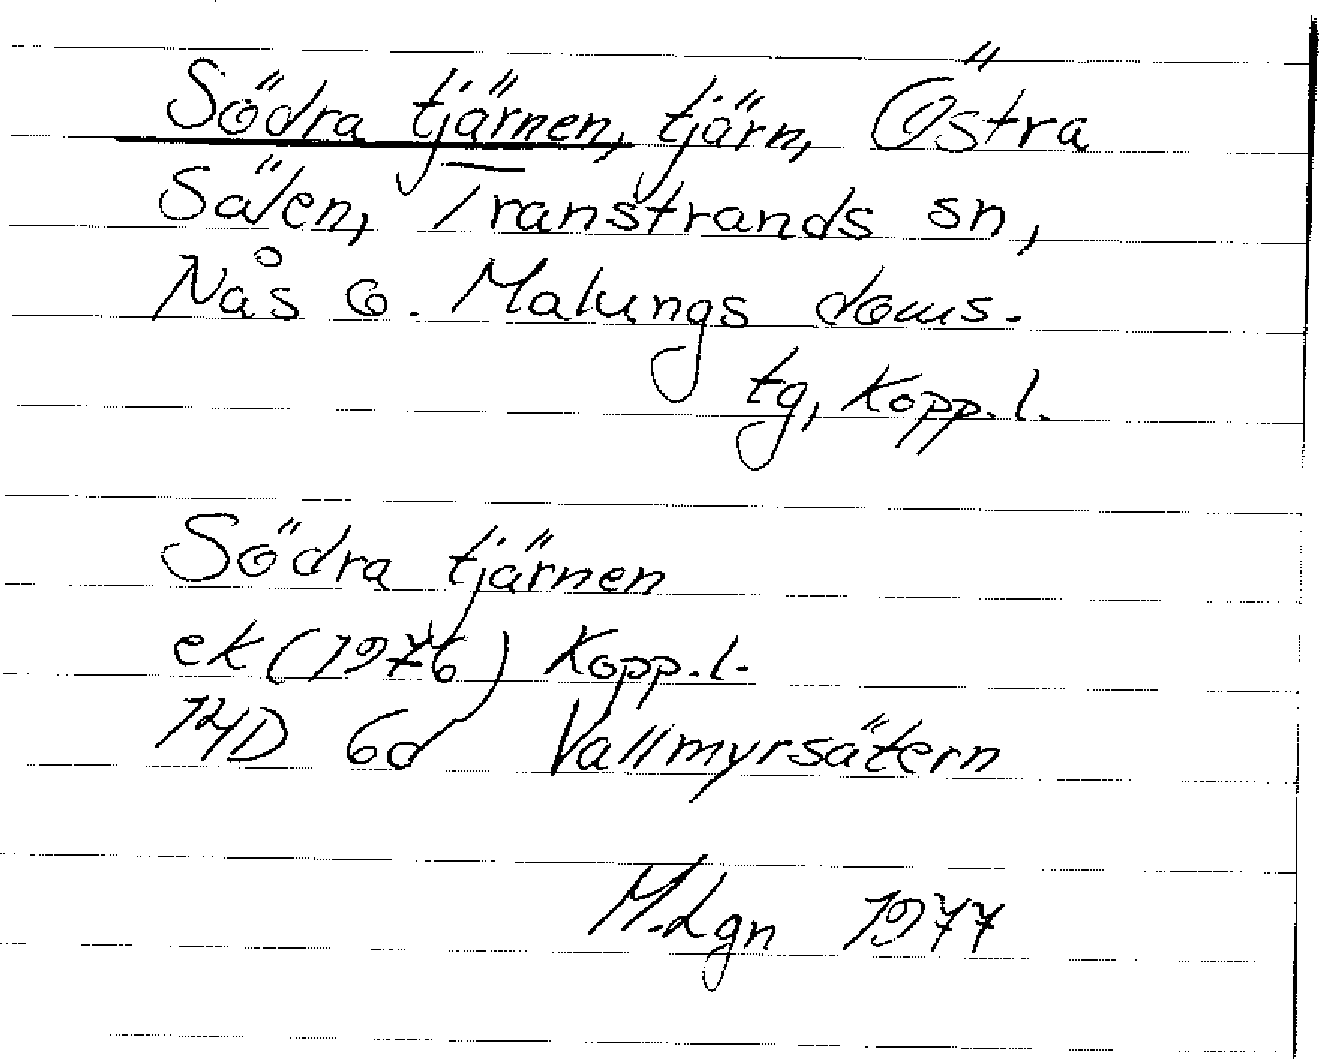 Södra tjärnen, tjärn, Östra
Sälen, Transtrands sn,
Nås o. Malungs doms.
tg, Kopp.l.
Södra tjärnen
ek (1976) Kopp.l.
14D 6d Vallmyrsätern
M.Lgn 1977